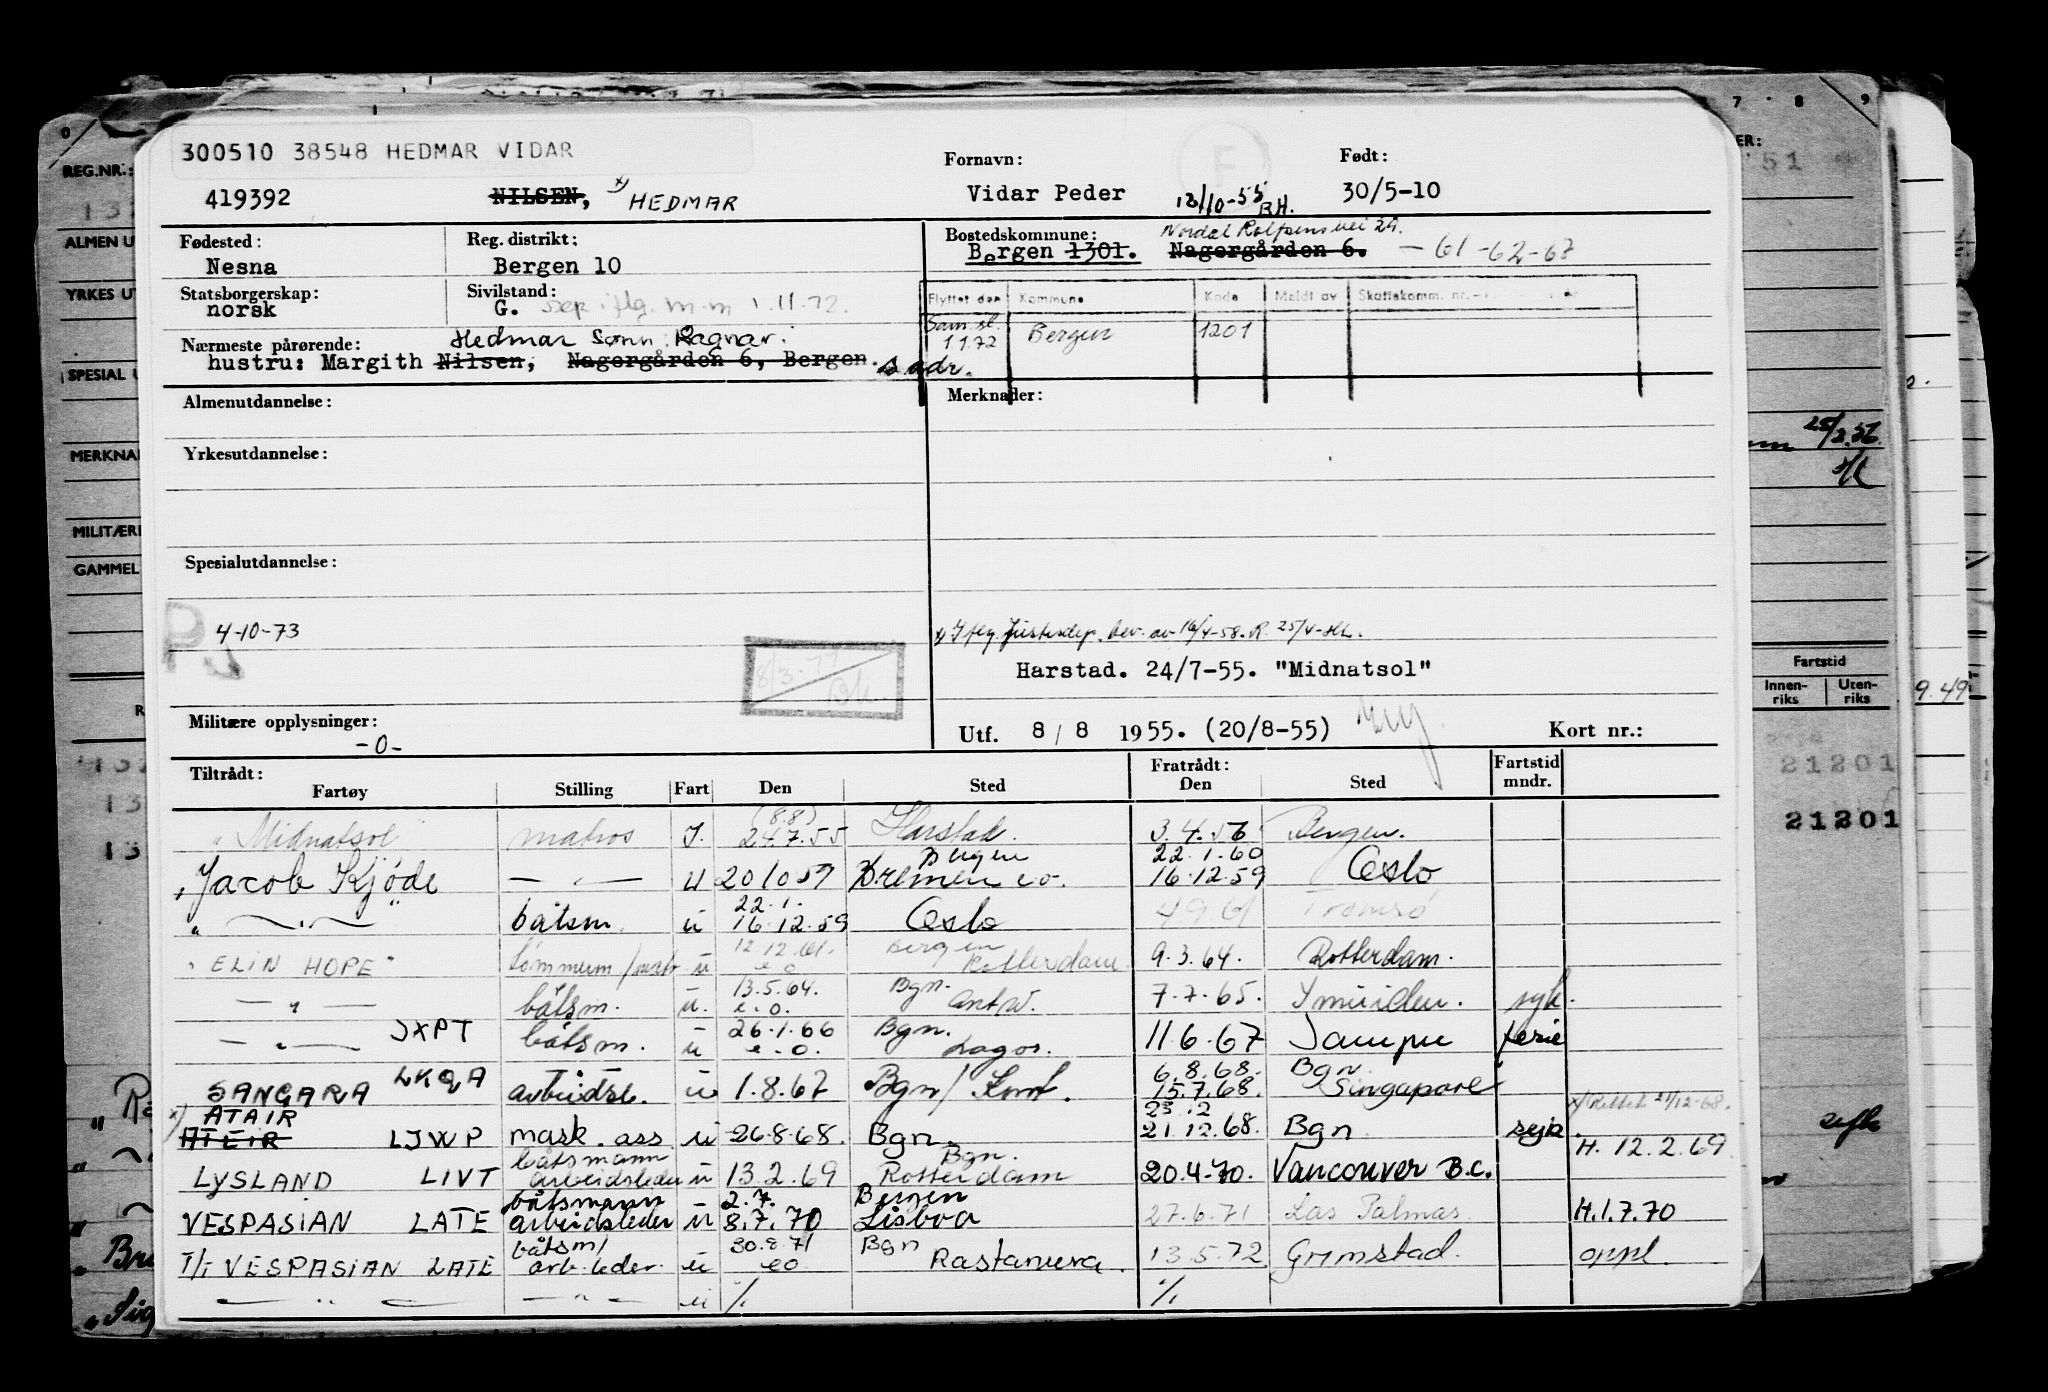 300510 38548 HEDMAR VIDAR
419392 NILSEN, x) HEDMAR
Fornavn: Vidar Peder 12/10-55 RH.
Født: 30/5-10
Fødested: Nesna
Reg. distrikt: Bergen 10
Bostedskommune: Nordal Rolfsens vei 29.
Bergen 1301. Nagergården 6. -61-62-67
Statsborgerskap: norsk
Sivilstand: G. sep. iflg. m.m 1.11.72.
Flyttet den Kommune Kode Meldt av Skattekomm. nr.
Sam. st. 1 1 72 Bergen 1201
Nærmeste pårørende: Hedmar Sønn: Ragnar.
hustru: Margith Nilsen, Nagergården 6, Bergen. s adr.
Almenutdannelse:
Merknader:
Yrkesutdannelse:
Spesialutdannelse:
4-10-73
x) Iflg. Justisdep. bev. av 16/4-58. R. 25/4-
Harstad. 24/7-55. "Midnatsol"
8/3-77
Militære opplysninger: -0-
Utf. 8 / 8 1955. (20/8-55)
Kort nr.:
Tiltrådt: Fratrådt: Fartstid
Fartøy Stilling Fart Den Sted Den Sted mndr.
"Midnatsol" matros I. (8.8) 24.7.55 Harstad. 3.4.56 Bergen.
"Jacob Kjøde" — " — U 20 10 59 Bergen Bremen e.o. 22.1.60 16.12.59 Oslo
" — " — båtsm. u 22.1. 16.12.59 Oslo 4.9.61 Tromsø
"ELIN HOPE" tømmerm/matr u 12.12.61. e o Bergen Rotterdam 9.3.64. Rotterdam.
— " — båtsm. u. 13.5.64. e.o. Bgn. Antw. 7.7.65. Ymuiden. syk.
— " — JXPT båtsm. u 26.1.66 e.o. Bgn. Lagos. 11.6.67 ferie
SANGARA LKQA arbeidsl. u 1.8.67 Bgn/ 6.8.68. 15.7.68. Bgn Singapore
x) ATAIR x) Rettet 21/12-68.
ATEIR LJWP mask. ass u 26.8.68. Bgn. 23.12 21.12.68. Bgn sejk. H. 12.2.69
LYSLAND LIVT båtsmann arbeidsleder u 13.2.69 Bgn. Rotterdam 20.4.70. Vancouver B.C.
VESPASIAN LATE båtsmann arbeidsleder u 2.7. 8.7.70 Bergen Lisboa 27.6.71 Las Palmas H.1.7.70
T/T VESPASIAN LATE båtsm/ arb.leder. u 30.8.71 eo Bgn Rastanura. 13.5.72 Grimstad. oppl.
— " — — " — u % %
REG.NR.:
ALMEN U
YRKES UT
SPESIAL U
MERKNA
MILITÆRE
GAMMEL
7 8 9
51
25/2.56.
Fartstid
Innen-riks Uten-riks
9.49
21201
21201